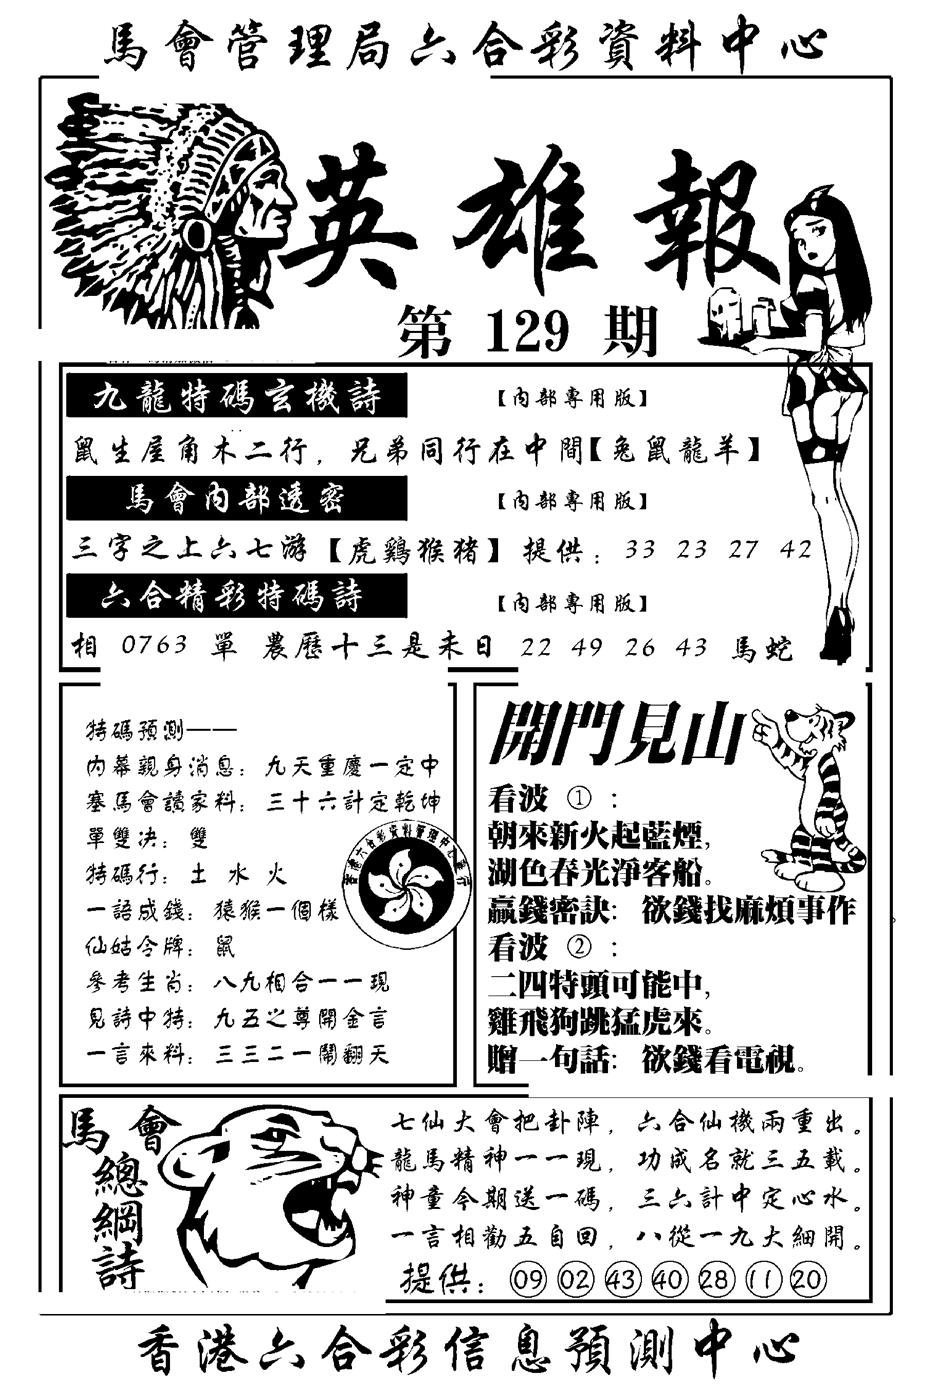 馬會管理局六合彩資料中心
英雄報
第 129 期
九龍特碼玄機詩
【內部專用版】
鼠生屋角木二行，兄弟同行在中間【兔鼠龍羊】
馬會內部透密
【內部專用版】
三字之上六七游【虎鷄猴猪】提供：33 23 27 42
六合精彩特碼詩
【內部專用版】
相 0763 單 農歷十三是未日 22 49 26 43 馬蛇
特碼預測——
內幕親身消息：九天重慶一定中
塞馬會讀家料：三十六計定乾坤
單雙決：雙
特碼行：土 水 火
一語成錢：猿猴一個樣
仙姑令牌：鼠
參考生肖：八九相合一一現
見詩中特：九五之尊開金言
一言來料：三三二一鬧翻天
開門見山
看波 ①：
朝來新火起藍煙，
湖色春光淨客船。
贏錢密訣：欲錢找麻煩事作
看波 ②：
二四特頭可能中，
雞飛狗跳猛虎來。
贈一句話：欲錢看電視。
馬會
總綱詩
七仙大會把卦陣，六合仙機兩重出。
龍馬精神一一現，功成名就三五載。
神童今期送一碼，三六計中定心水。
一言相勸五自回，八從一九大細開。
提供：09 02 43 40 28 11 20
香港六合彩信息預測中心